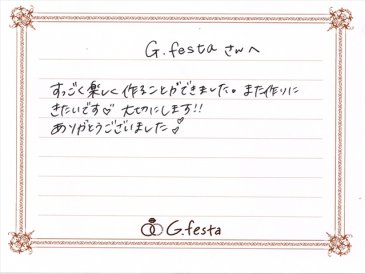 G.festa さんへ
すっごく楽しく作ることができました。また作りに
きたいです♡ 大切にします!!
ありがとうございました♡
G.festa